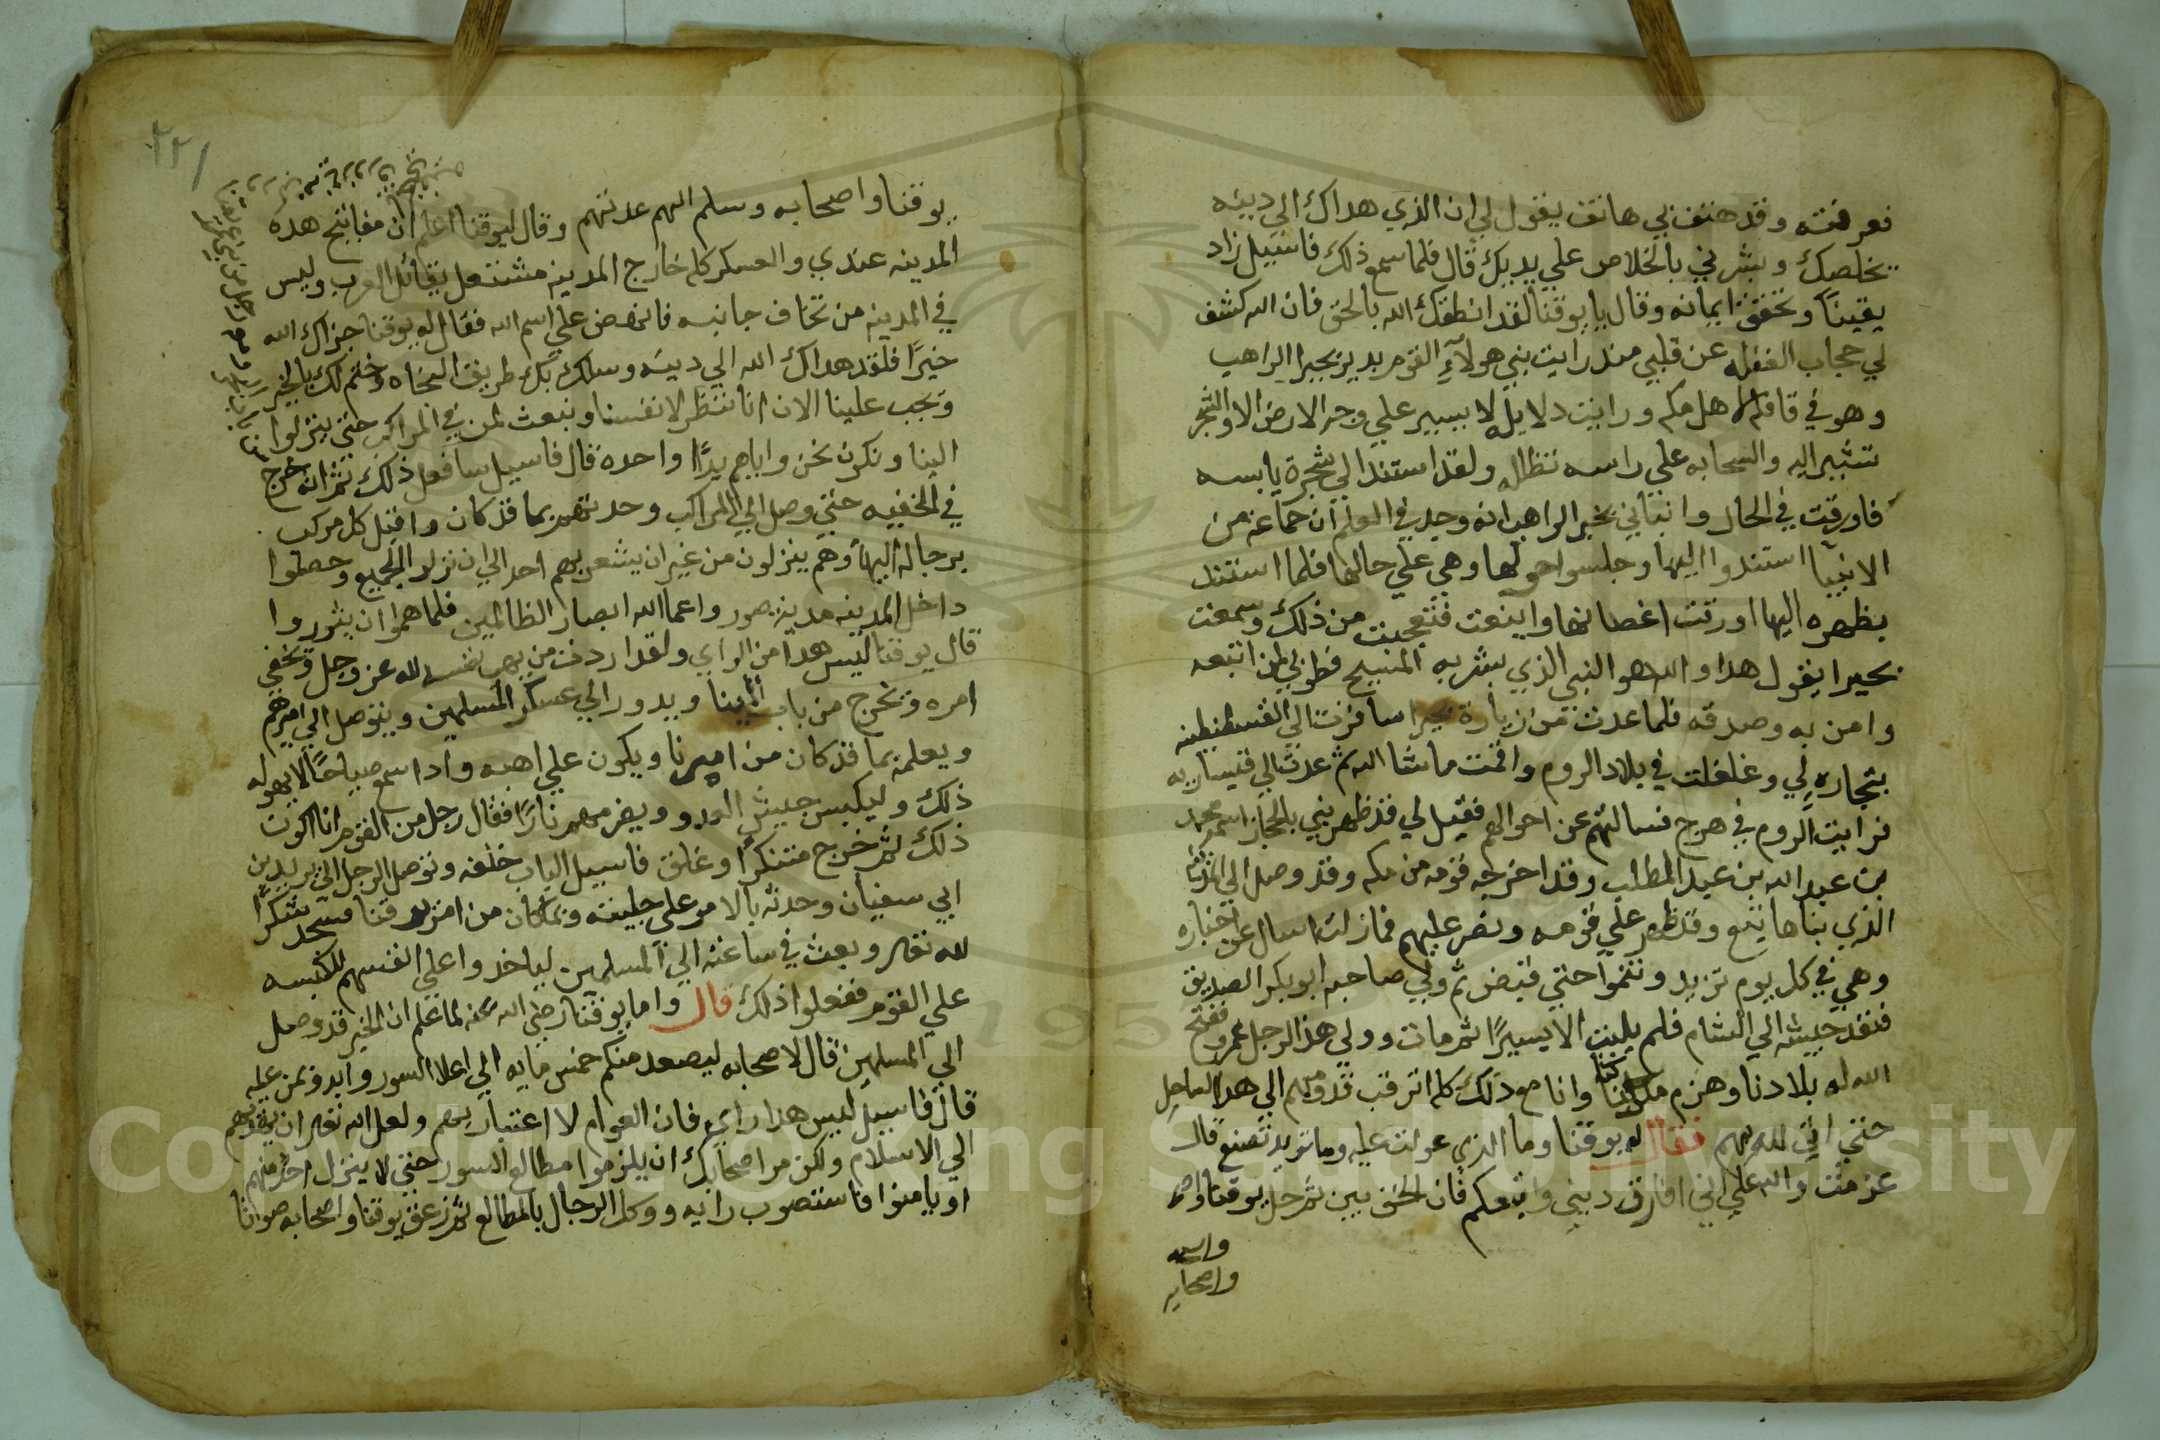 فعرفته وقد هتف بي هاتف يقول لي ان الذي هداك الي دينه
يخلصك وبشرني بالخلاص علي يديك قال فلما سمع ذلك فاسيل زاد
يقينًا وتحقق ايمانه وقال يا يوقنا لقد انطقك الله بالحق فان الله كشف
لي حجاب الغفله عن قلبي منذ رايت نبي هولآءِ القوم بدير بحيرا الراهب
وهو في قافلة لاهل مكه ورايت دلايله لا يسير علي وجه الارض الا والشجر
تشير اليه والسحابه علي راسه تظله ولقد استند الي شجرة يابسه
فاورقت في الحال وانباني بحير الراهب انه وجد في العلم ان جماعه من
الانبيا استندوا اليها وجلسوا حولها وهي علي حالها فلما استند
بظهره اليها اورقت اغصانها واينعت فتعجبت من ذلك وسمعت
بحيرا يقول هدا والله هو النبي الذي بشر به المسيح فطوبي لمن اتبعه
وامن به وصدقه فلما عدت من زيارة بحيرا سافرت الي القسطنطينه
بتجاره لي وغلغلت في بلاد الروم واقمت ماشا الله ثم عدت الي قيساريه
فرايت الروم في هرج فسالتهم عن احوالهم فقيل لي قد ظهر نبي بالحجاز اسمه محمد
بن عبد الله بن عبد المطلب وقد اخرجه قومه من مكه وقد وصل الي المدينه
الذي بناها تبع وقد ظهر علي قومه ونصر عليهم فمازلت اسال عن اخباره
وهي في كل يوم تزيد وتنموا حتي قبض ثم ولي صاحبه ابو بكر الصديق
فنفد جيشه الي الشام فلم يلبث الا يسيرًا ثم مات وولي هذا الرجل عمر وفتح
الله له بلادنا وهزم ملوكنا وانا مع ذلك كله اترقب قدومهم الي هدا الساحل
حتي اتي الله بهم فقال له يوقنا وما الذي عولت عليه وما تريد تصنع قال
عزمت والله علي اني افارق ديني واتبعكم فان الحق بين ثم حل يوقنا واصحا
واصحابه
يوقنا واصحابه وسلم اليهم عدتهم وقال ليوقنا اعلم ان مفاتيح هده
المدينه عندي والعسكر كله خارج المدينه مشتغل بقتال العرب وليس
في المدينه من تخاف جانبه فانهض علي اسم الله فقال له يوقنا جزاك الله
خيرًا فلقد هداك الله الي دينه وسلك بك طريق النجاه وختم لك بالخير
ويجب علينا الان انا ننظر لانفسنا ونبعث لمن في المراكب حتي ينزلوا
الينا ونكون نحن واياهم يدًا واحده قال فاسيل سافعل ذلك ثم انه خرج
في الخفيه حتي وصل الي المراكب وحدثهم بما قد كان واقبل كل مركب
برجاله اليها وهم ينزلون من غير ان يشعر بهم احد الي ان نزل الجميع وحصلوا
داخل المدينه مدينة صور واعما الله ابصار الظالمين فلما هموا ان يثوروا
قال يوقنا ليس هدا من الراي ولقد اردت من يهب نفسه لله عز وجل ويخفي
امره ويخرج من باب المينا ويدور الي عسكر المسلمين ويتوصل الي اميرهم
ويعلمه بما قد كان من اميرنا ويكون علي اهبه وادا سمع صياحًا لا يهوله
ذلك وليكبس جيش العدو ويضرمهم نارًا فقال رجل من القوم انا اكون
ذلك ثم خرج متنكرًا وغلق فاسيل الباب خلفه وتوصل الرجل الي يزيد بن
ابي سفيان وحدثه بالامر علي جليته وبما كان من امر يوقنا فسجد شكرًا
لله تعالى وبعث في ساعته الي المسلمين لياخدوا علي انفسهم للكبسه
علي القوم ففعلوا ذلك قال واما يوقنا رضي الله عنه لما علم ان الخبر قد وصل
الي المسلمين قال لاصحابه ليصعد منكم خمس مايه الي اعلا السور وابدو بمن عليه
قال فاسيل ليس هدا راي فان العوام لا اعتبار بهم ولعل الله تعالى ان يهديهم
الي الاسلام ولكن مر اصحابك ان يلزموا مطالع السور حتي لا ينزل احد منهم
او يامنوا فاستصوب رايه ووكل الرجال بالمطالع ثم زعق يوقنا واصحابه صوانا